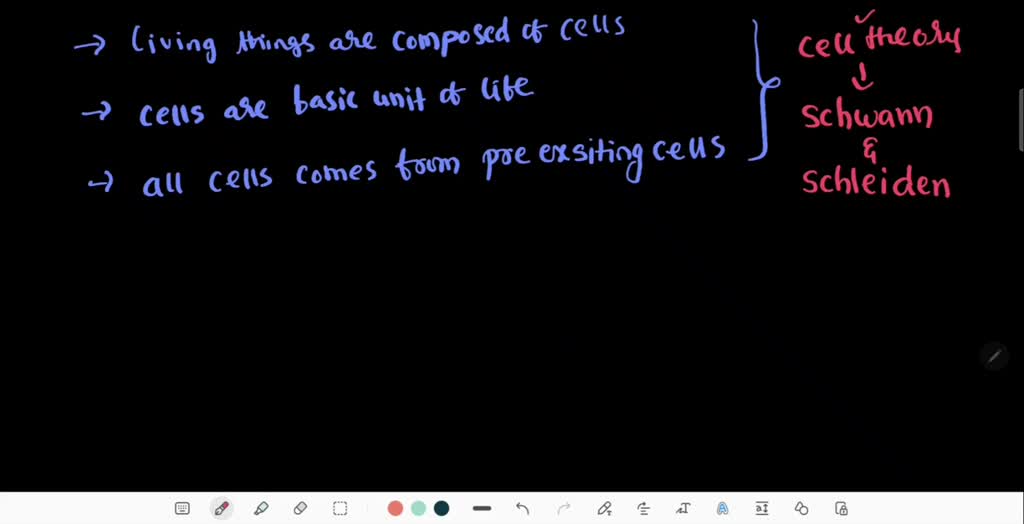 → Living things are composed of cells
→ cells are basic unit of life
→ all cells comes from pre exsiting cells
cell theory
↓
Schwann
&
Schleiden